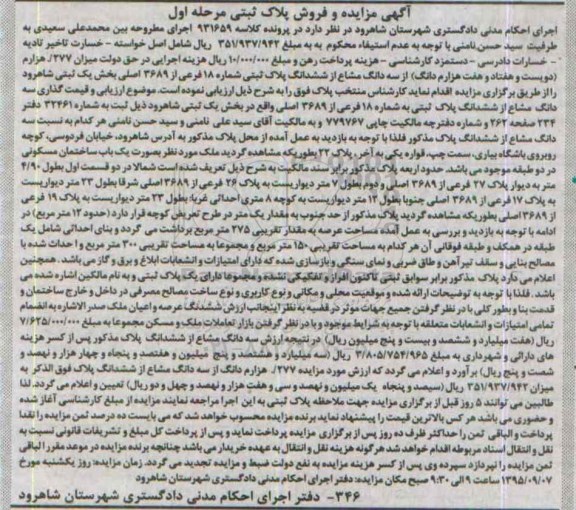 آگهی مزایده و فروش پلاک ثبتی مرحله اول
اجرای احکام مدنی دادگستری شهرستان شاهرود در نظر دارد در پرونده کلاسه ۹۳۱۶۵۹ اجرای مطروحه بین محمدعلی سعیدی به
طرفیت سید حسن نامنی با توجه به عدم استیفاء محکوم به به مبلغ ۳۵۱/۹۳۷/۹۴۲ ریال شامل اصل خواسته - خسارت تاخیر تادیه
- خسارات دادرسی - دستمزد کارشناسی - هزینه پرداخت رهن و مبلغ ۱۰/۰۰۰/۰۰۰ ریال هزینه اجرایی در حق دولت میزان ۲۷۷/. هزارم
(دویست و هفتاد و هفت هزارم دانگ) از سه دانگ مشاع از ششدانگ پلاک ثبتی شماره ۱۸ فرعی از ۳۶۸۹ اصلی بخش یک ثبتی شاهرود
را از طریق برگزاری مزایده اقدام نماید کارشناس منتخب پلاک فوق را به شرح ذیل ارزیابی نموده است. موضوع ارزیابی و قیمت گذاری سه
دانگ مشاع از ششدانگ پلاک ثبتی به شماره ۱۸ فرعی از ۳۶۸۹ اصلی واقع در بخش یک ثبتی شاهرود ذیل ثبت به شماره ۳۲۴۶۱ دفتر
۲۳۴ صفحه ۲۶۲ و شماره دفترچه مالکیت چاپی ۷۷۹۶۶۷ و به مالکیت آقای سید علی نامنی و سید حسن نامنی هر کدام به نسبت سه
دانگ مشاع از ششدانگ پلاک مذکور فلذا با توجه به بازدید به عمل آمده از محل پلاک مذکور به آدرس شاهرود، خیابان فردوسی، کوچه
روبروی باشگاه بیاری، سمت چپ، قواره یکی به آخر، پلاک ۲۲ بطوریکه مشاهده گردید ملک مورد نظر بصورت یک باب ساختمان مسکونی
در دو طبقه موجود می باشد. حدود اربعه پلاک مذکور برابر سند مالکیت به شرح ذیل تعریف شده است شمالا در دو قسمت اول بطول ۴/۹۰
متر به دیوار پلاک ۲۷ فرعی از ۳۶۸۹ اصلی و دوم بطول ۷ متر دیواریست به پلاک ۲۶ فرعی از ۳۶۸۹ اصلی شرقا بطول ۲۳ متر دیواریست
به پلاک ۱۷ فرعی از ۳۶۸۹ اصلی جنوبا بطول ۱۲ متر دیواریست به کوچه ۸ متری احداثی غربا: بطول ۲۳ متر دیواریست به پلاک ۱۹ فرعی
از ۳۶۸۹ اصلی بطوریکه مشاهده گردید پلاک مذکور از حد جنوب به مقدار یک متر در طرح تعریض کوچه قرار دارد (حدود ۱۲ متر مربع) در
ادامه با توجه به بازدید و بررسی به عمل آمده مساحت عرصه به مقدار تقریبی ۲۷۵ متر مربع برداشت می گردد و بنای احداثی شامل یک
طبقه در همکف و طبقه فوقانی آن هر کدام به مساحت تقریبی ۱۵۰ متر مربع و مجموعا به مساحت تقریبی ۳۰۰ متر مربع و احداث شده با
مصالح بنایی و سقف تیرآهن و طاق ضربی و نمای سنگی و بازسازی شده که دارای امتیازات و انشعابات ابلاغ و برق و گاز می باشد. همچنین
اعلام می دارد پلاک مذکور برابر سوابق ثبتی تاکنون افراز و تفکیکی نشده و مجموعا دارای یک پلاک ثبتی و به نام مالکین اشاره شده می
باشد. فلذا با توجه به توضیحات ارائه شده و موقعیت محلی و مکانی و نوع کاربری و نوع ساخت مصالح مصرفی در داخل و خارج ساختمان و
قدمت بنا و بطور کلی با در نظر گرفتن جمیع جهات موثر در قضیه به نظر اینجانب ارزش ششدنگ عرصه و اعیان ملک صدر الاشاره به انضمام
تمامی امتیازات و انشعابات متعلقه با توجه به شرایط موجود و با در نظر گرفتن بازار تعاملات ملک و مسکن مجموعا به مبلغ ۷/۶۲۵/۰۰۰/۰۰۰
ریال (هفت میلیارد و ششصد و بیست و پنج میلیون ریال) در نتیجه ارزش سه دانگ مشاع از ششدانگ پلاک مذکور پس از کسر هزینه
های دارائی و شهرداری به مبلغ ۳/۸۰۵/۷۵۴/۹۶۵ ریال (سه میلیارد و هشتصد و پنج میلیون و هفتصد و پنجاه و چهار هزار و نهصد و
شصت و پنج ریال) برآورد و اعلام می گردد که ارزش مورد مزایده ۲۷۷/. هزارم دانگ از سه دانگ مشاع از ششدانگ پلاک فوق الذکر به
میزان ۳۵۱/۹۳۷/۹۴۲ ریال (سیصد و پنجاه یک میلیون و نهصد و سی و هفت هزار و نهصد و چهل و دو ریال) تعیین و اعلام می گردد. لذا
طالبین می توانند ۵ روز قبل از برگزاری مزایده جهت ملاحظه پلاک ثبتی به این اجرا مراجعه نمایند مزایده از مبلغ کارشناسی آغاز شده
و حضوری می باشد هر کس بالاترین قیمت را پیشنهاد نماید برنده مزایده محسوب خواهد شد که می بایست ده درصد ثمن مزایده را نقدا
پرداخت و الباقی ثمن را حداکثر ظرف ده روز پس از برگزاری مزایده پرداخت نماید و پس از پرداخت کل مبلغ و تشریفات قانونی نسبت به
نقل و انتقال اسناد مربوطه اقدام خواهد شد هر گونه هزینه نقل و انتقال به عهده خریدار می باشد چنانچه برنده مزایده در موعد مقرر الباقی
ثمن مزایده را نپردازد سپرده وی پس از کسر هزینه مزایده به نفع دولت ضبط و مزایده تجدید می گردد. زمان مزایده: روز یکشنبه مورخ
۱۳۹۵/۰۹/۰۷ ساعت ۹ الی ۹:۳۰ صبح مکان مزایده: دفتر اجرای احکام مدنی دادگستری شهرستان شاهرود
۳۴۶- دفتر اجرای احکام مدنی دادگستری شهرستان شاهرود